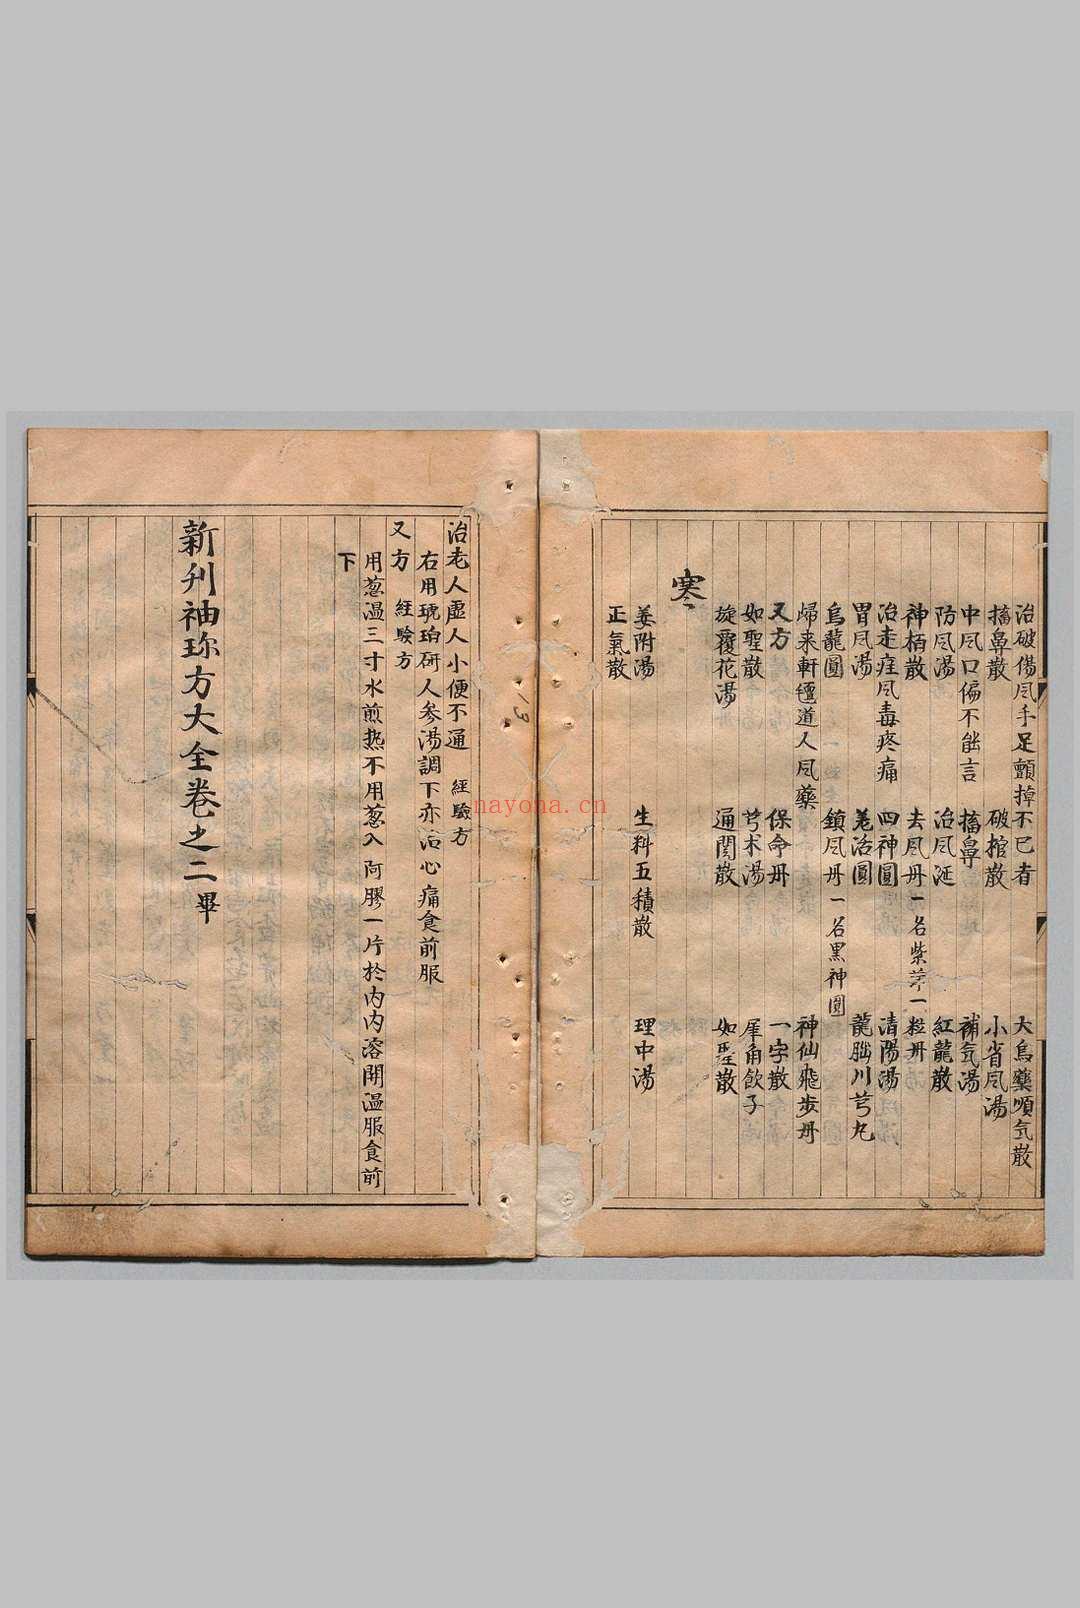 治破傷風手足顫掉不已者 大烏藥順気散
搐鼻散 破棺散 小省風湯
中風口偏不能言 搐鼻 補気湯
防風湯 治風涎 紅龍散
神栢散 去風丹一名紫萍一粒丹
治走疰風毒疼痛 四神圓 清陽湯
胃風湯 羗活圓 龍腦川芎丸
烏龍圓 鎮風丹一名黒神圓
歸来軒 道人風藥 神仙飛步丹
又方 保命丹 一字散
如聖散 芎术湯 犀角飲子
旋覆花湯 通関散 如聖散
寒
姜附湯 生料五積散 理中湯
正氣散
治老人虛人小便不通 經驗方
右用琥珀研人参湯調下亦治心痛食前服
又方 經驗方
用葱溫三寸水煎热不用葱入阿膠一片於内内溶開温服食前
下
新刋袖珎方大全卷之二畢
13
nayona.cn